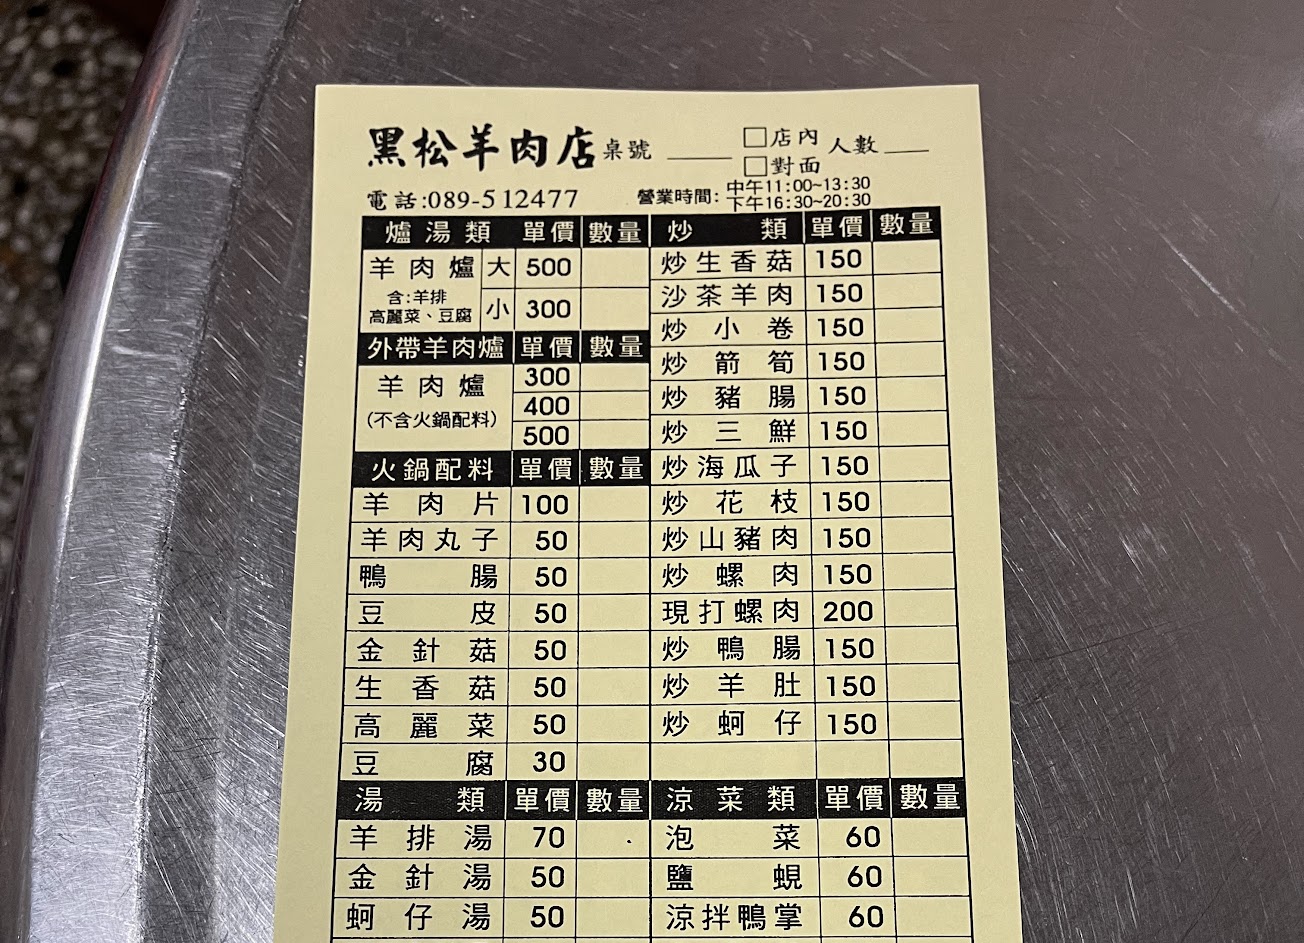 黑松羊肉店 桌號 ____ □店內 人數 ____
□對面
電話:089-512477 營業時間: 中午11:00~13:30
下午16:30~20:30
爐湯類 單價 數量 炒類 單價 數量
羊肉爐 大 500 炒生香菇 150
含:羊排 沙茶羊肉 150
高麗菜、豆腐 小 300 炒小卷 150
外帶羊肉爐 單價 數量 炒箭筍 150
羊肉爐 300 炒豬腸 150
(不含火鍋配料) 400 炒三鮮 150
500
火鍋配料 單價 數量 炒海瓜子 150
羊肉片 100 炒花枝 150
羊肉丸子 50 炒山豬肉 150
鴨腸 50 炒螺肉 150
豆皮 50 現打螺肉 200
金針菇 50 炒鴨腸 150
生香菇 50 炒羊肚 150
高麗菜 50 炒蚵仔 150
豆腐 30
湯類 單價 數量 涼菜類 單價 數量
羊排湯 70 泡菜 60
金針湯 50 鹽蜆 60
蚵仔湯 50 涼拌鴨掌 60